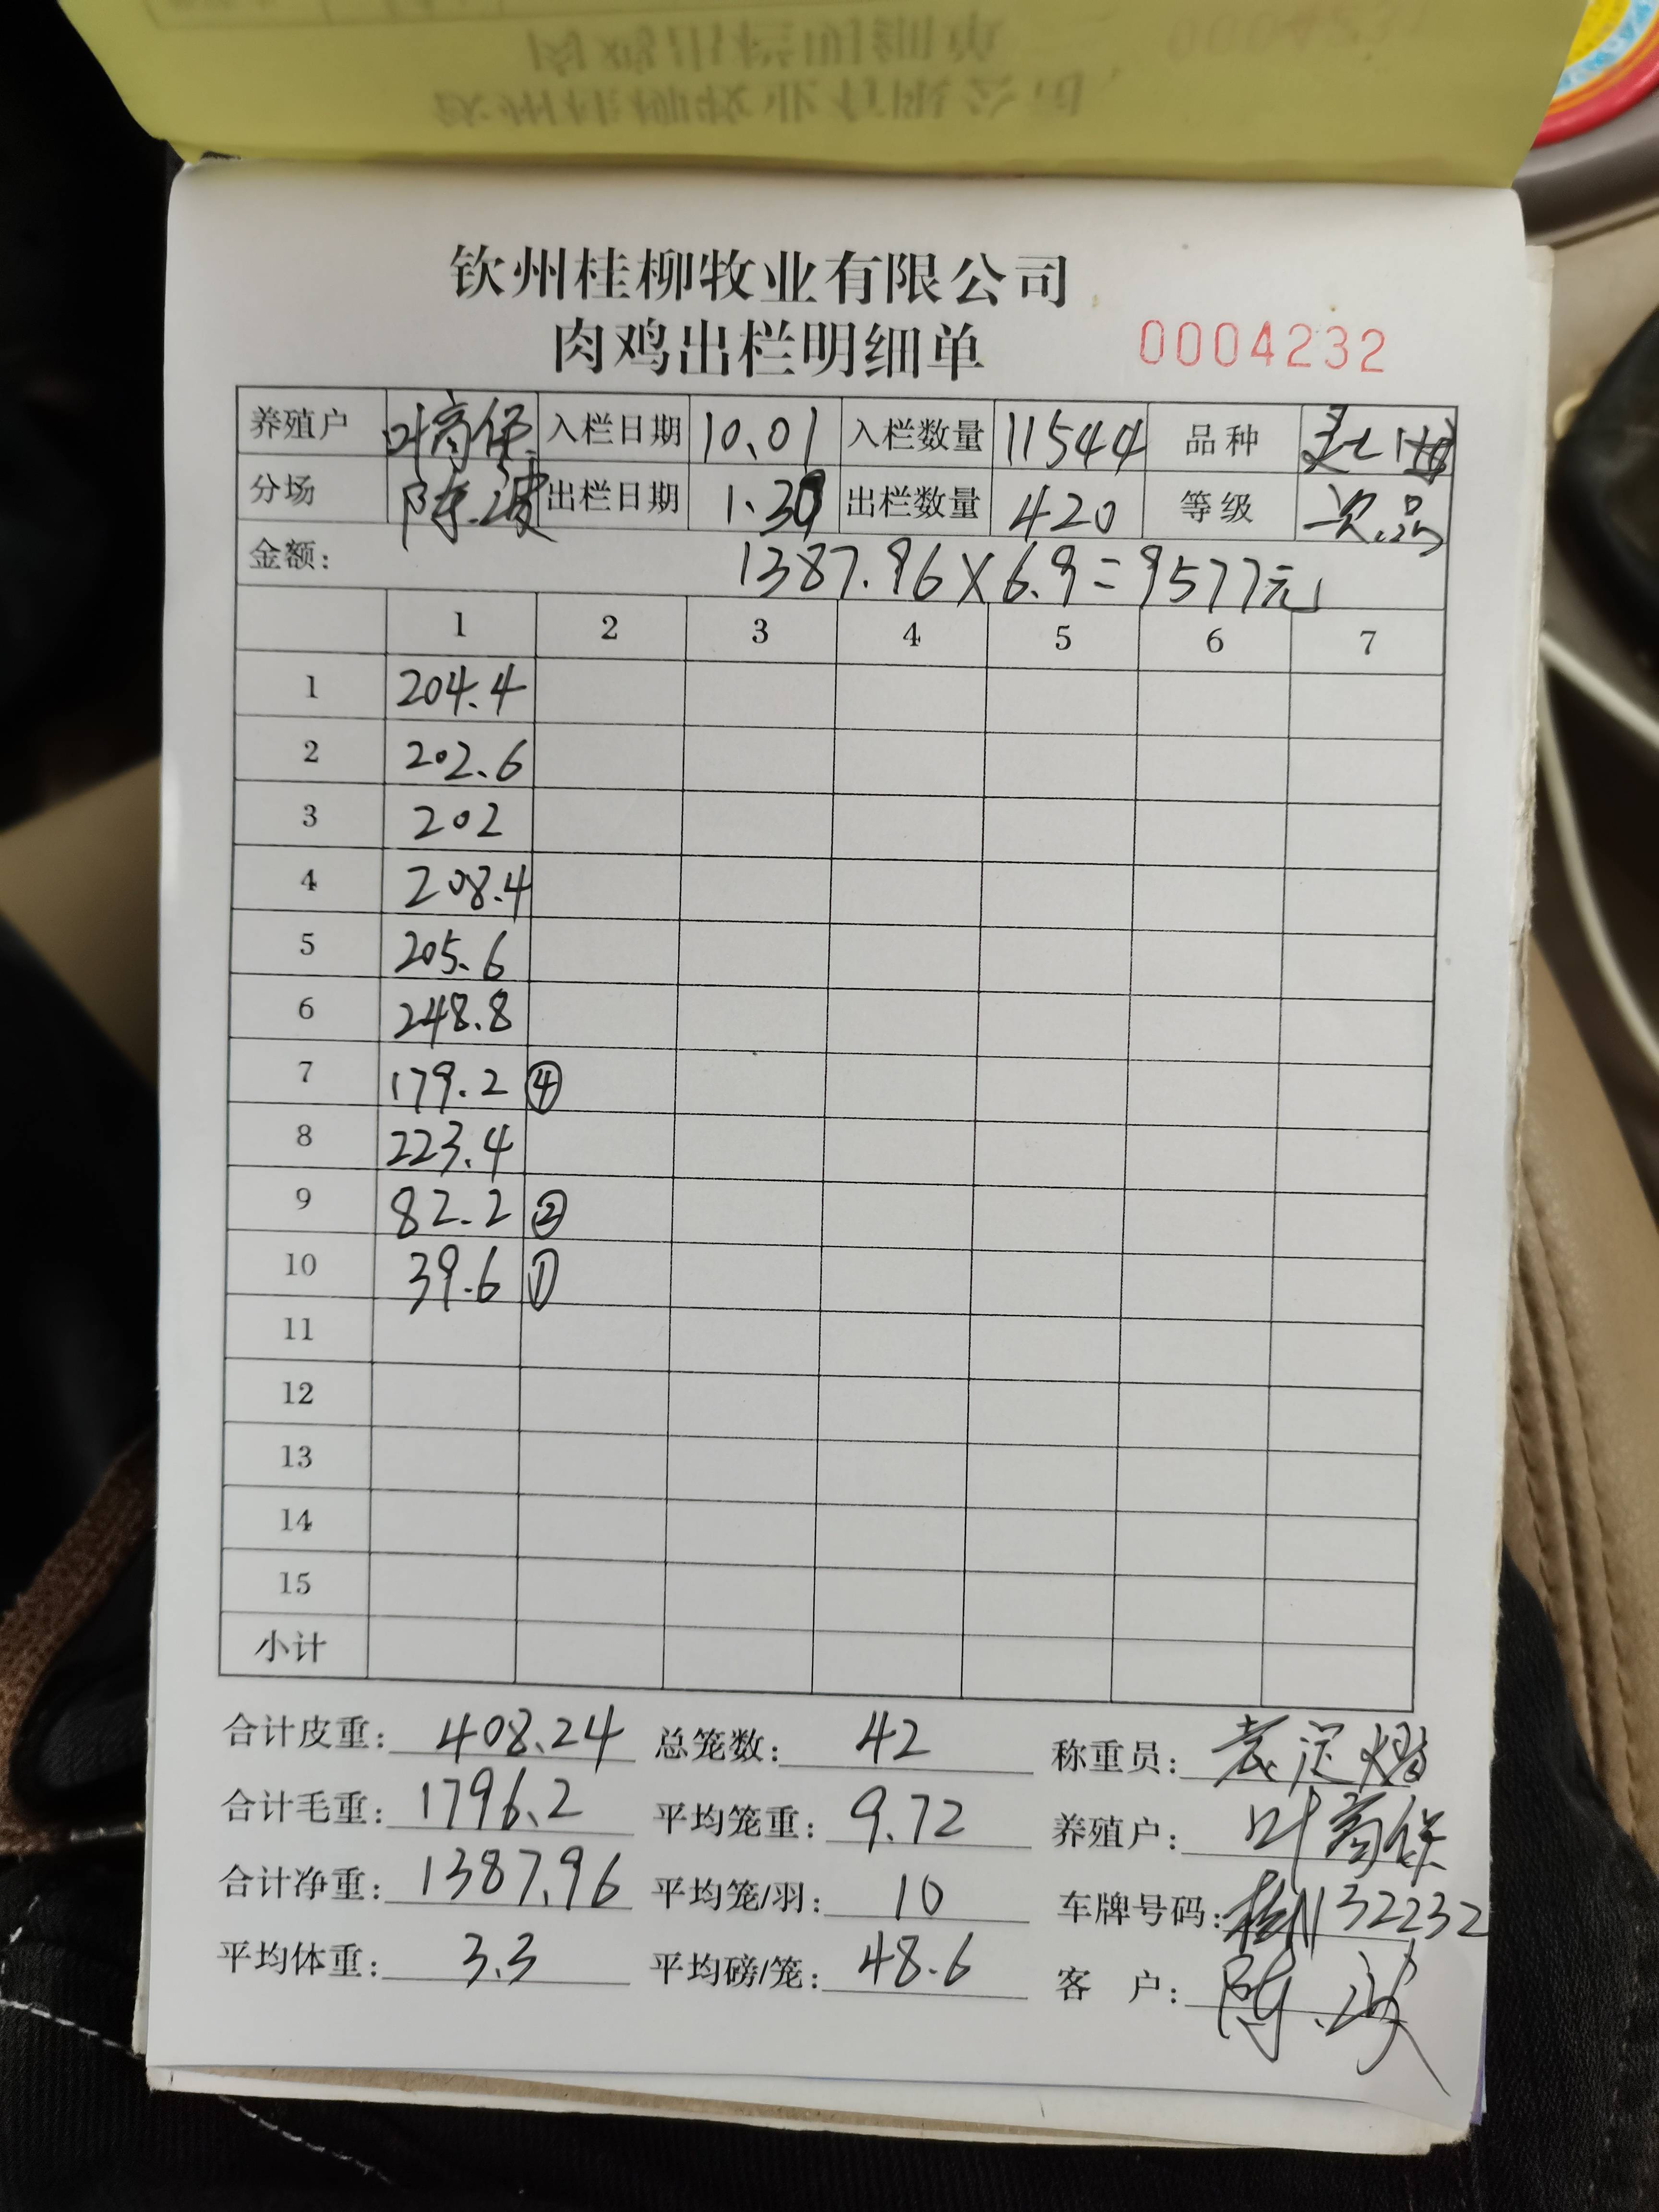 钦州桂柳牧业有限公司
肉鸡出栏明细单 0004232
养殖户 叶 入栏日期 10.01 入栏数量 11544 品种
分场 陈波 出栏日期 1.30 出栏数量 420 等级 次品
金额: 1387.96×6.9=9577元
1 2 3 4 5 6 7
1 204.4
2 202.6
3 202
4 208.4
5 205.6
6 248.8
7 179.2 ④
8 223.4
9 82.2 ②
10 39.6 ①
11
12
13
14
15
小计
合计皮重: 408.24 总笼数: 42 称重员:
合计毛重: 1796.2 平均笼重: 9.72 养殖户: 叶
合计净重: 1387.96 平均笼/羽: 10 车牌号码: 桂N32232
平均体重: 3.3 平均磅/笼: 48.6 客 户: 陈波